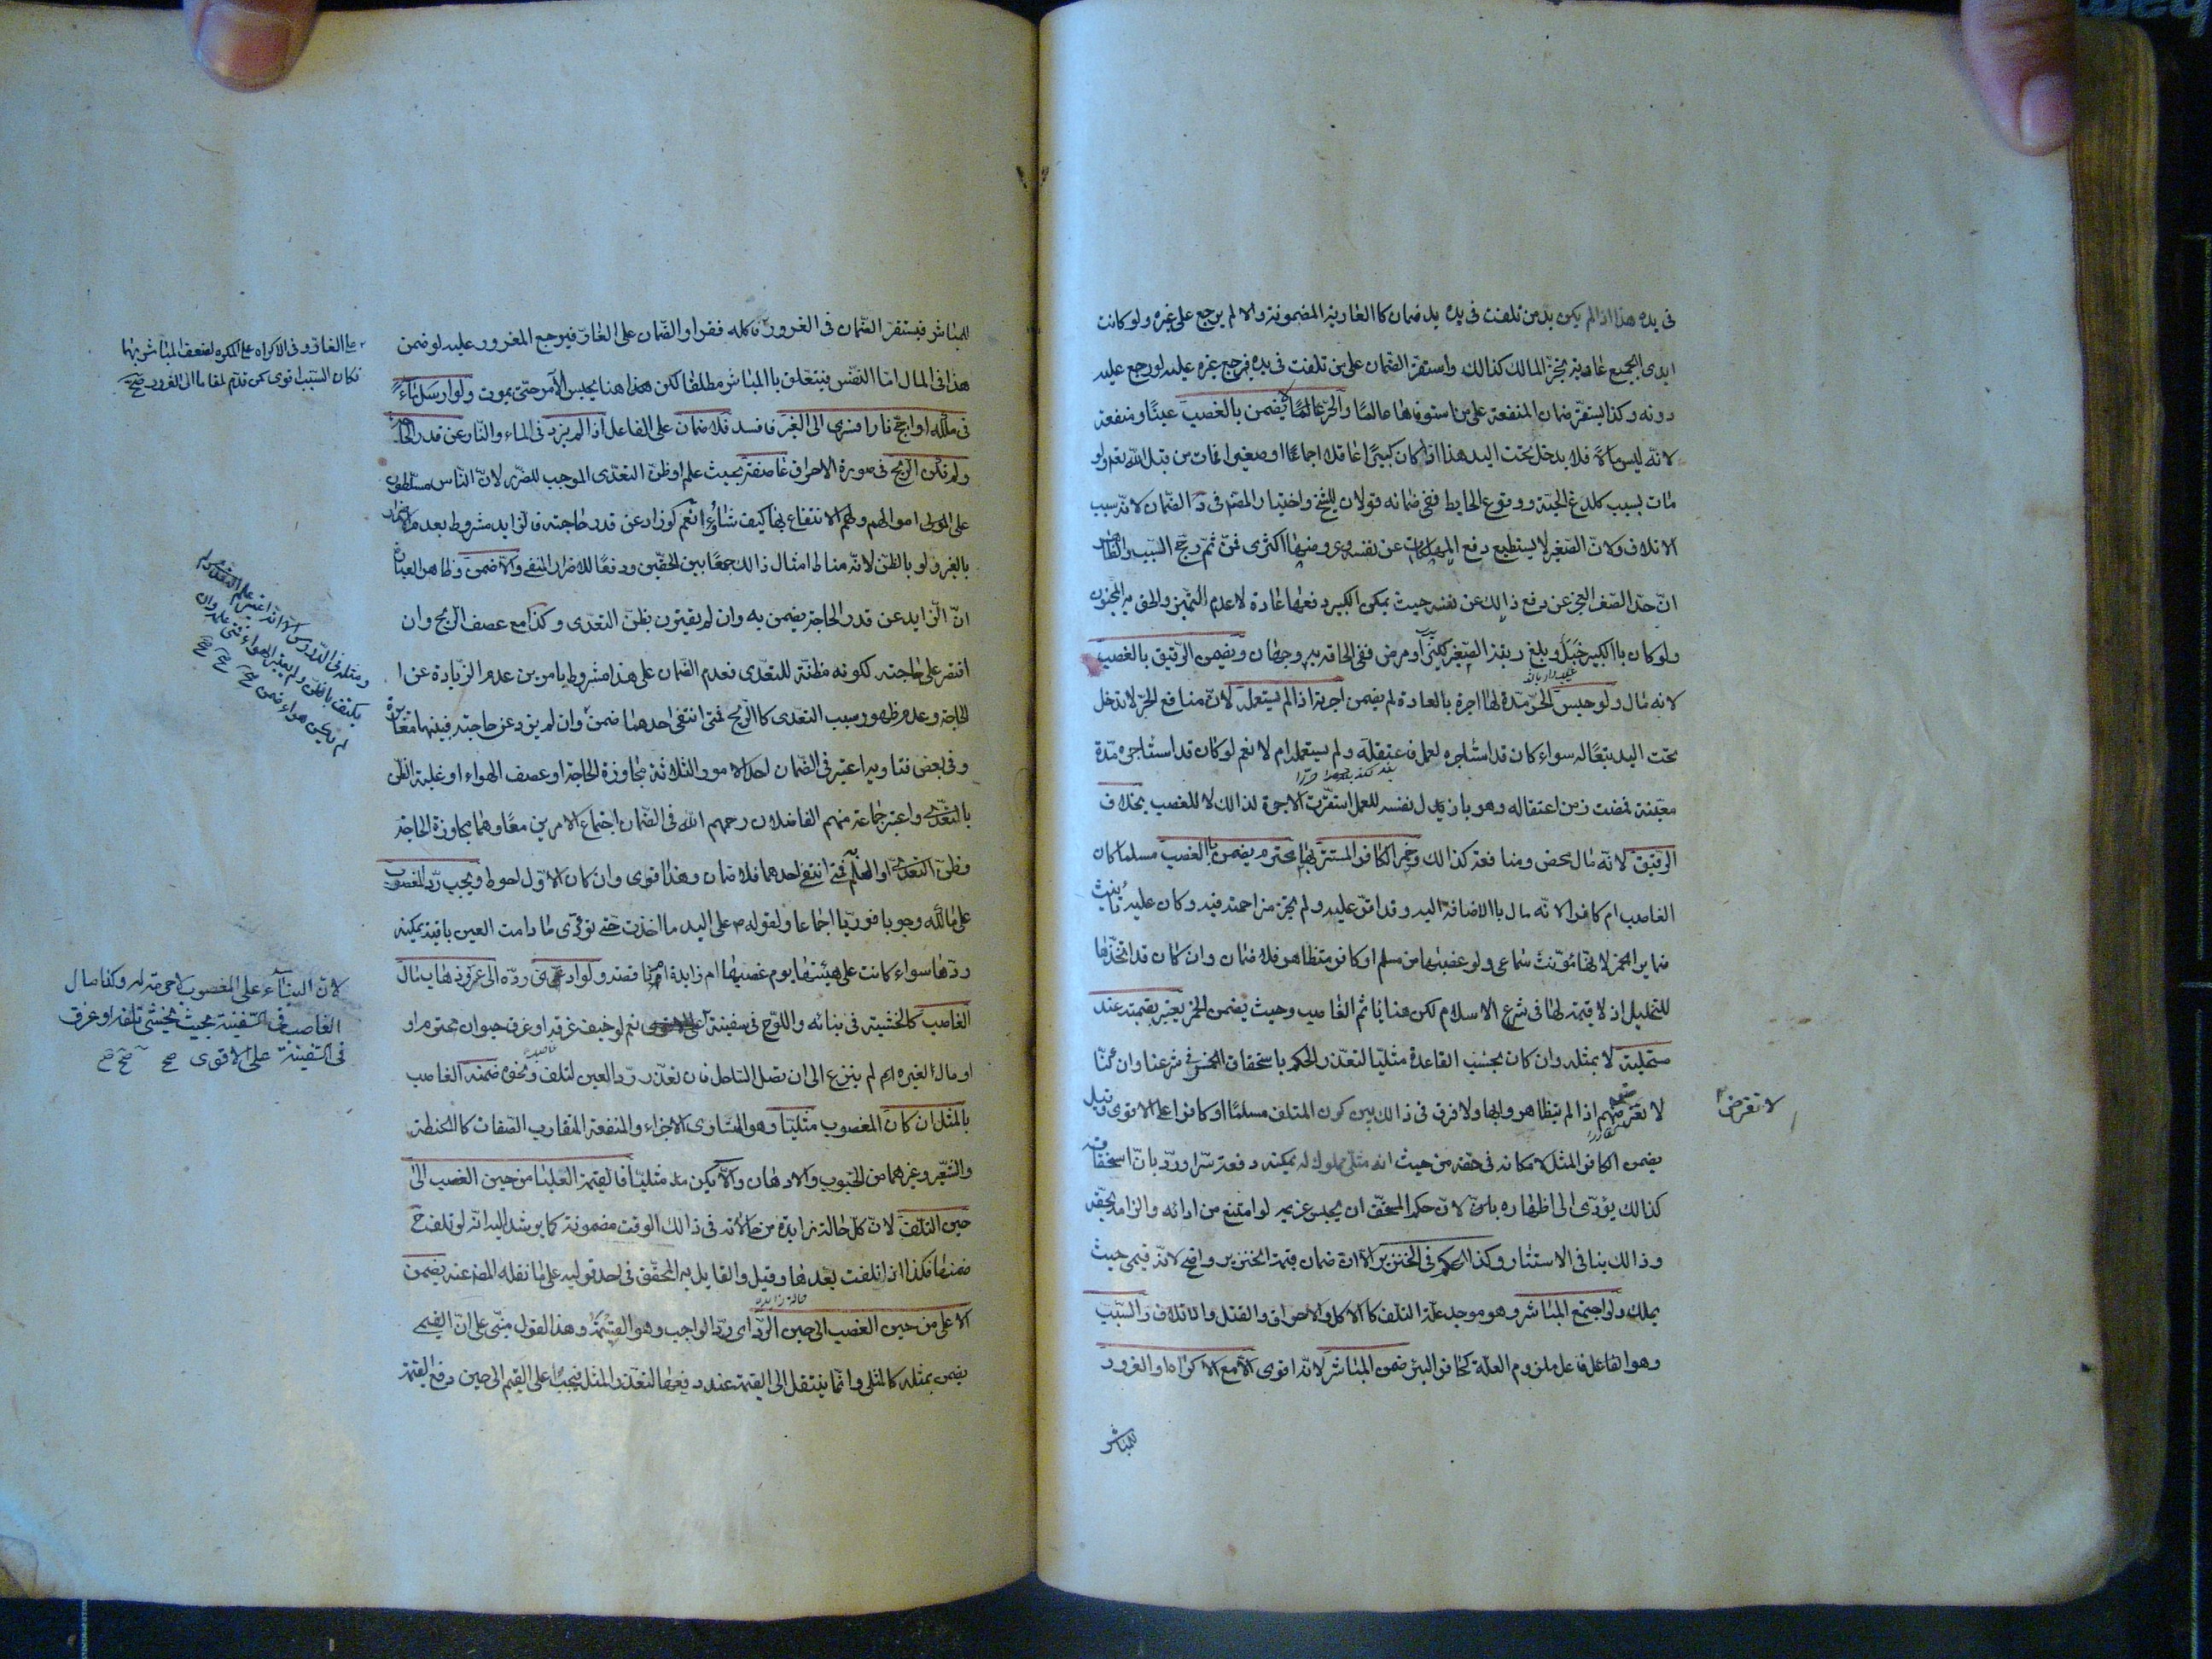 فى يده هذا اذا لم يكن يد من تلفت فى يده يد ضمان كالعارية المضمونة والا لم يرجع على غيره ولو كانت
ايدى الجميع عادية تخيّر المالك كذالك واستقرّ الضّمان على من تلفت فى يده فيرجع غيره عليه لو رجع عليه
دونه وكذا يستقرّ ضمان المنفعة على من استوفاها عالمًا والحرّ لا يضمن بالغصب عينًا ومنفعة
لانّه ليس مالا فلا يدخل تحت اليد هذا اذا كان كبيرًا عاقلا اجماعًا او صغيرا فمات من قبل الله تعالى ولو
مات بسبب كلدغ الحيّة ووقوع الحايط ففى ضمانه قولان للشيخ واختيار المصنف فى س الضّمان لانّه سبب
الاتلاف ولانّ الصّغير لا يستطيع دفع المهلكات عن نفسه وعروضها اكثرى فمن ثمّ رجّح السّبب والظاهر
انّ حدّ الصّغير العجز عن دفع ذالك عن نفسه حيث يمكن الكبير دفعها عادة لا عدم التّميز والحق به المجنون
ولو كان بالكبير خبل وبلغ رتبة الصّغير لكبر او مرض ففى الحاقه به وجهان ويضمن الرّقيق بالغصب
لانه مال ولو حبس الحرّ مدّة لها اجرة بالعادة لم يضمن اجرته اذا لم يستعمله لانّ منافع الحرّ لا تدخل
تحت اليد تبعًا له سواء كان قد استأجره لعمل فاعتقله ولم يستعمله ام لا نعم لو كان قد استأجره مدّة
معيّنة فمضت زمن اعتقاله وهو باذل نفسه للعمل استقرّت الاجرة لذالك لا للغصب بخلاف
الرّقيق لانّه مال محض ومنافعه كذالك وخمر الكافر المستتر بها محترم يضمن بالغصب مسلما كان
الغاصب ام كافرا لانّه مال بالاضافة اليه وقد اقرّ عليه ولم يجز مزاحمته فيه وكان عليه تأنيث
ضماير الخمر لانّها مؤنّث سماعى ولو غصبها من مسلم او كافر متظاهر فلا ضمان وان كان قد اتخذها
للتخليل اذ لا قيمة لها فى شرع الاسلام لكن هنا يأثم الغاصب وحيث يضمن الخمر يعتبر بقيمته عند
مستحليه لا بمثله وان كان بحسب القاعدة مثليّا لتعذّر الحكم باستحقاق الخمر فى شرعنا وان كنّا
لا نعترضهم اذا لم يتظاهروا بها ولا فرق فى ذالك بين كون المتلف مسلمًا او كافرا على الاقوى وقيل
يضمن الكافر المثل لامكانه فى حقه من حيث انه مثلى مملوك له يمكنه دفعه سرّا وردّ بانّ استحقاقه
كذالك يؤدّى الى اظهاره لانّ حكم المستحق ان يحبس غريمه لو امتنع من ادائه والزامه بحقه
وذالك ينافى الاستتار وكذا الحكم فى الخنزير الا ان ضمان قيمة الخنزير واضح لانّه قيمى حيث
يملك ولو اجتمع المباشر وهو موجد علّة التلف كالاكل والاحراق والقتل والاتلاف والسّبب
وهو الفاعل فاعل ملزوم العلّة كحافر البئر ضمن المباشر لانّه اقوى الّا مع الاكراه او الغرور
للمباشر
لا نتعرض
للمباشر فيستقرّ الضّمان فى الغرور فاكله فقرار الضّمان على الغارّ فيرجع المغرور عليه لو ضمن
هذا فى المال امّا النّفس فيتعلق بالمباشر مطلقا لكن هنا يحبس الآمر حتّى يموت ولو ارسل ماءً
فى ملكه او اجّج نارا فسرى الى الغير فافسد فلا ضمان على الفاعل اذا لم يزد فى الماء والنّار عن قدر الحاجة
ولم تكن الرّيح فى صورة الاحراق عاصفة بحيث علم او ظنّ التعدّى الموجب للضّرر لانّ النّاس مسلّطون
على اموالهم ولهم الانتفاع بها كيف شاؤا نعم لو زاد عن قدر حاجته فالزايد مشروط بعدم الاضرار
بالغير ولو بالظّن لانّه مناط امثال ذالك جمعًا بين الحقّين ودفعًا للاضرار المنفى والّا ضمن وظاهر العبارة
انّ الزّايد عن قدر الحاجة يضمن به وان لم يقترن بظنّ التعدّى وكذا مع عصف الرّيح وان
اقتصر على حاجته لكونه مظنّة للتعدّى فعدم الضّمان على هذا مشروط بامرين عدم الزّيادة عن
الحاجة وعدم ظهور سبب التعدّى كالرّيح فمتى انتفى احدهما ضمن وان لم يزد عن حاجته فبينهما مغايرة
وفى بعض فتاويه اعتبر فى الضّمان احد الامور الثلاثة مجاوزة الحاجة او عصف الهواء او غلبة الظّن
بالتعدّى واعتبر جماعة منهم الفاضلان رحمهم الله فى الضّمان اجتماع الامرين معًا وهما مجاوزة الحاجة
وظنّ التعدّى او العلم فمتى انتفى احدهما فلا ضمان وهذا قوى وان كان الاوّل احوط ويجب ردّ المغصوب
على مالكه وجوبا فوريّا اجماعا ولقوله ص على اليد ما اخذت حتّى تؤدّى ما دامت العين باقية يمكنه
ردّها سواء كانت على هيئتها يوم غصبها ام زايدة ام ناقصة ولو ادى ردّه الى عسر وذهاب مال
الغاصب كالخشبة فى بنائه واللوح فى سفينة نعم لو خيف غرقه او غرق حيوان محترم او
او مال لغيره لم ينزع الى ان تصل السّاحل فان تعذّر ردّ العين لتلف ونحوه ضمنه الغاصب
بالمثل ان كان المغصوب مثليّا وهو المتساوى الاجزاء والمنفعة المتقارب الصّفات كالحنطة
والشّعير وغيرهما من الحبوب والادهان والّا يكن مثليّا فالقيمة العليا من حين الغصب الى
حين التّلف لانّ كلّ حالة زايدة من حالاته فى ذالك الوقت مضمونة كما يرشد اليه انّه لو تلف ح
ضمنها فكذا اذا تلفت بعدها وقيل والقايل به المحقّق فى احد قوليه على ما نقله المص عنه يضمن
الاعلى من حين الغصب الى حين الرّد اى ردّ الواجب وهو القيمة وهذا القول مبنى على انّ القيمى
يضمن بمثله كالمثلى وانّما ينتقل الى القيمة عند دفعها لتعذّر المثل فيجب اعلى القيم الى حين دفع القيمة
على الغارّ وفى الاكراه على المكره لضعف المباشر بهما
فكان السّبب اقوى كمن قدّم طعاما الى المغرور صح
لانّ البناء على المغصوب لا حرمة له وكذا مال
الغاصب فى السّفينة بحيث يخشى تلفه او غرق
فى السّفينة على الاقوى صح